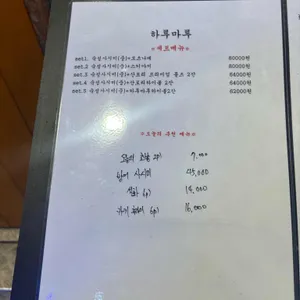 하루마루
※세트메뉴※
set1. 숙성사시미(중)+오스나베 80000원
set.2 숙성사시미(중)+스키야키 80000원
set.3 숙성사시미(중)+산토리 프리미엄 몰츠 2잔 64000원
set.4 숙성사시미(중)+산토리하이볼 2잔 64000원
set.5 숙성사시미(중)+하루마루하이볼2잔 62000원
※오늘의 추천 메뉴※
오늘의 2p) 7,000
사시미 45,000
6p) 18,000
6p) 18,000